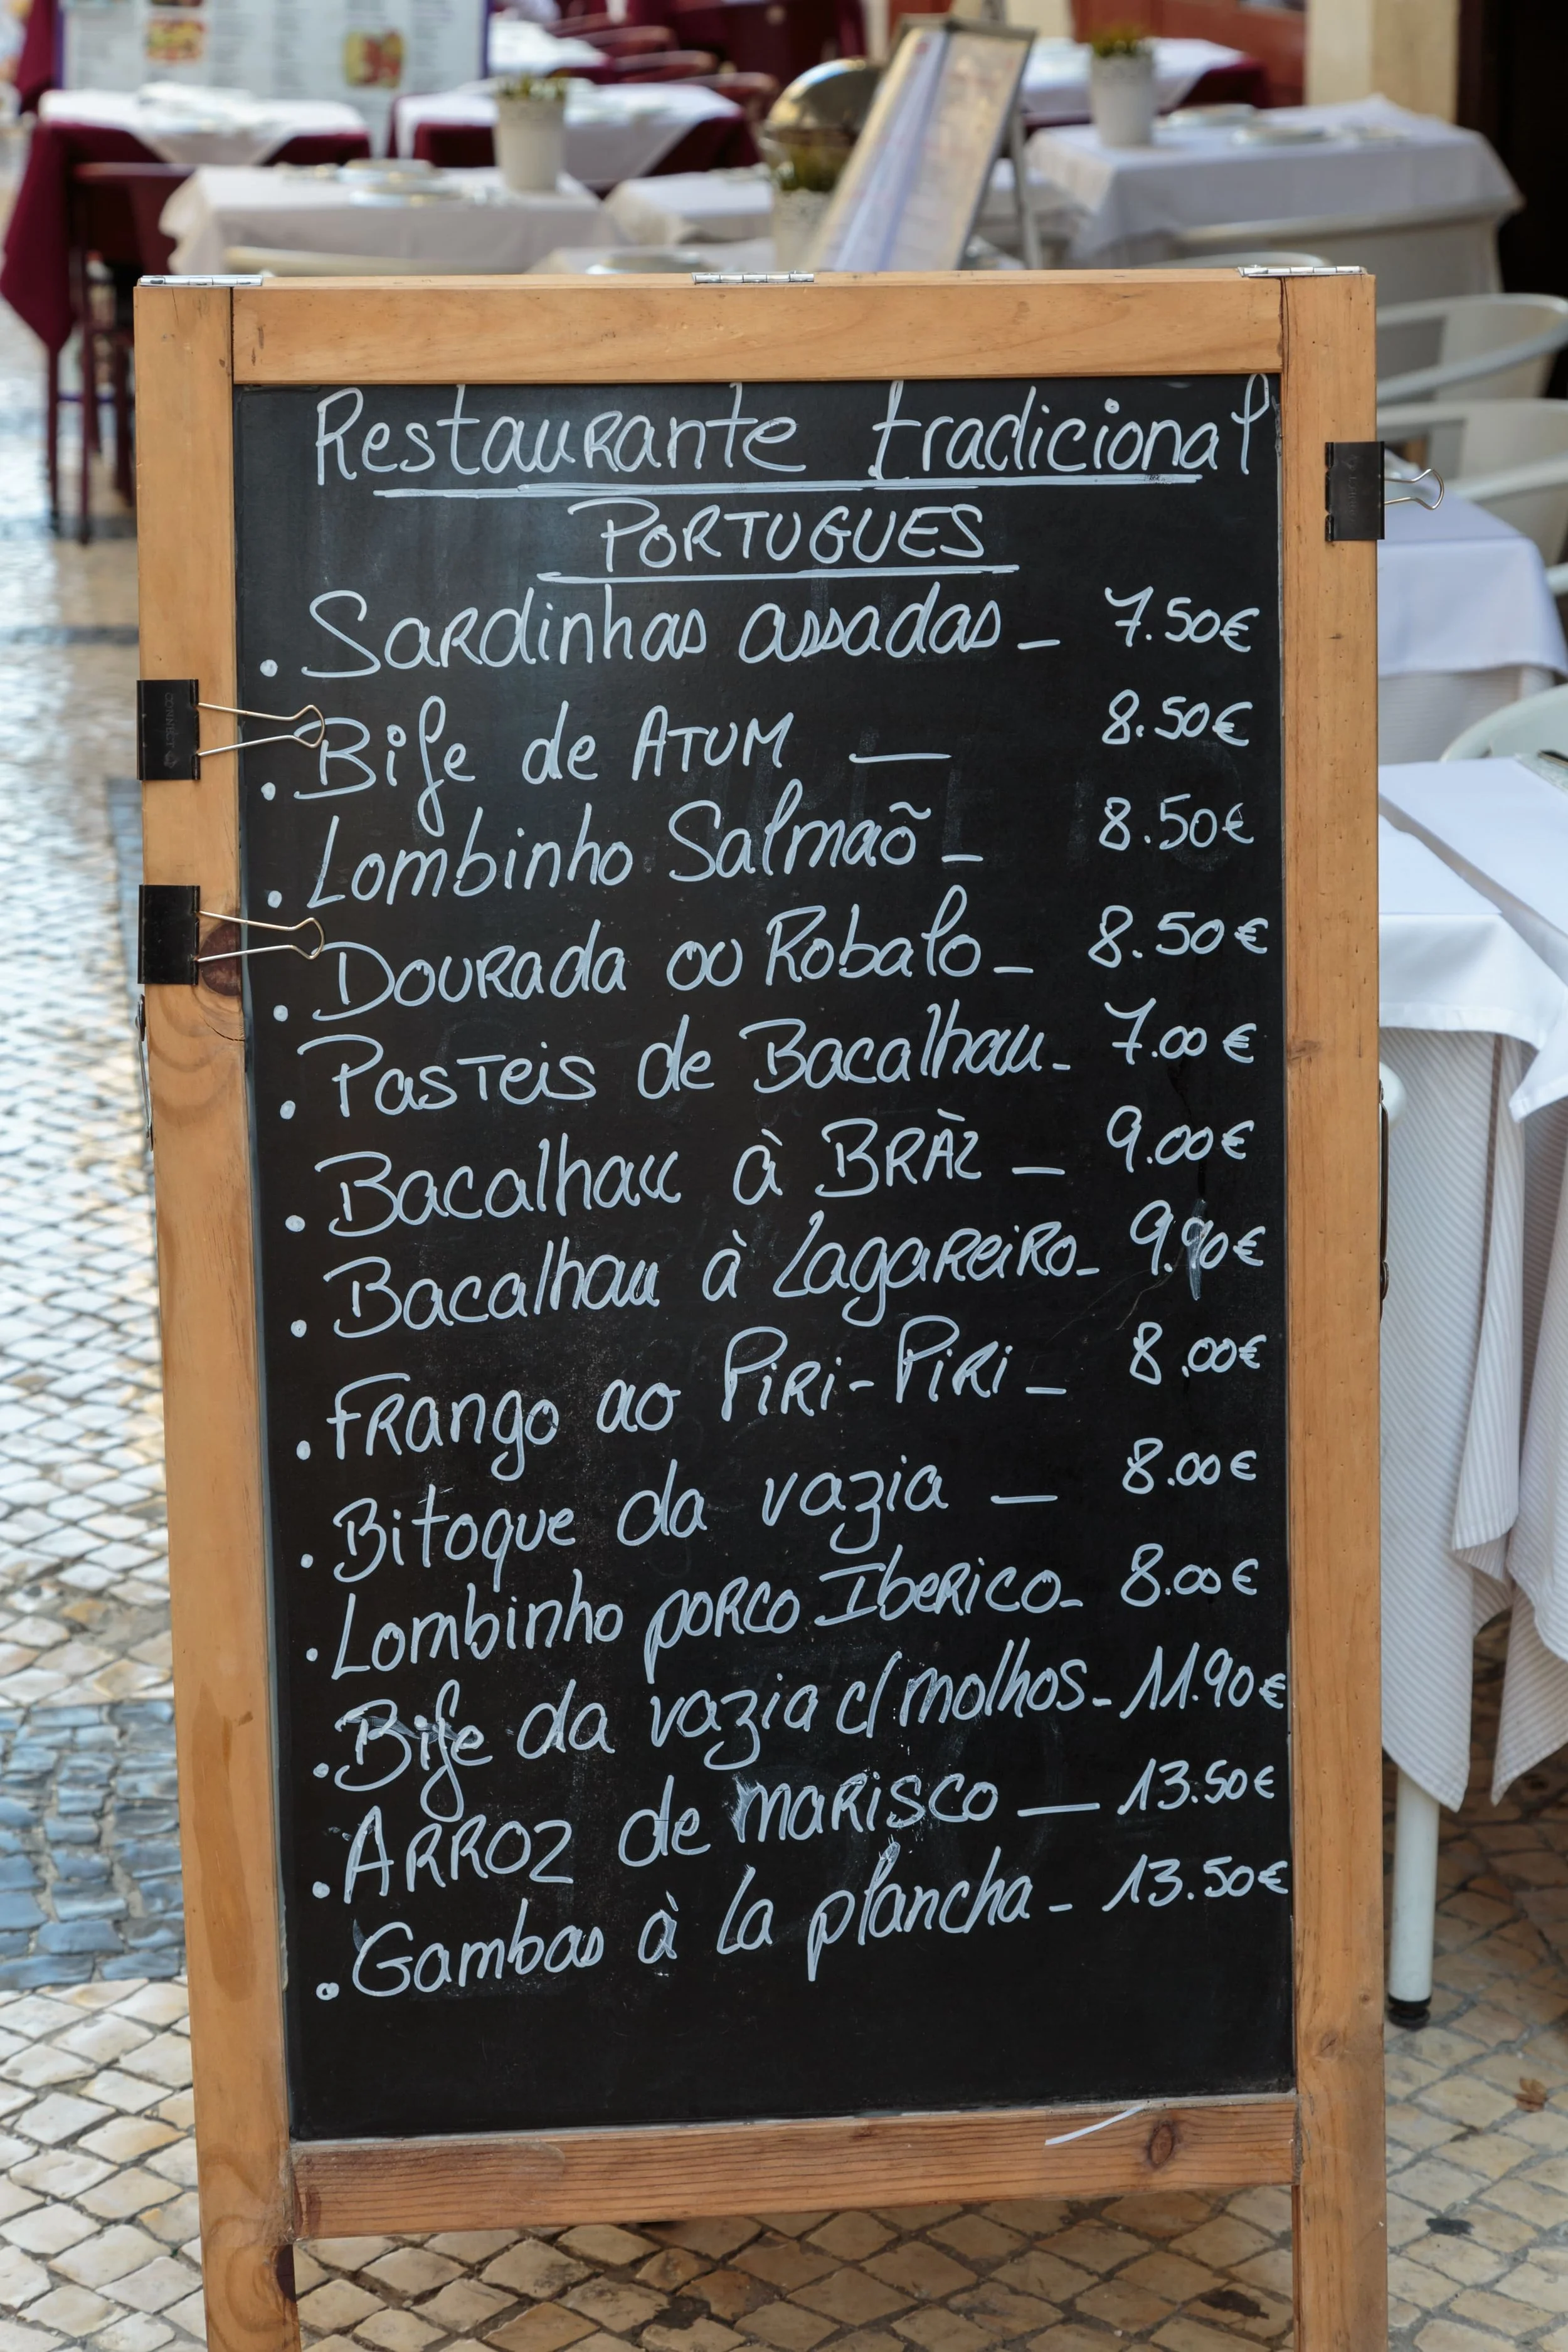 Restaurante tradicional
PORTUGUES
. Sardinhas assadas - 7.50€
. Bife de ATUM — 8.50€
. Lombinho Salmaõ - 8.50€
. Dourada ou Robalo - 8.50€
. Pasteis de Bacalhau - 7.00€
. Bacalhau à BRÀZ - 9.00€
. Bacalhau à Lagareiro - 9.90€
. Frango ao Piri-Piri - 8.00€
. Bitoque da vazia — 8.00€
. Lombinho porco Iberico - 8.00€
. Bife da vazia c/ molhos - 11.90€
. Arroz de marisco — 13.50€
. Gambas à la plancha - 13.50€